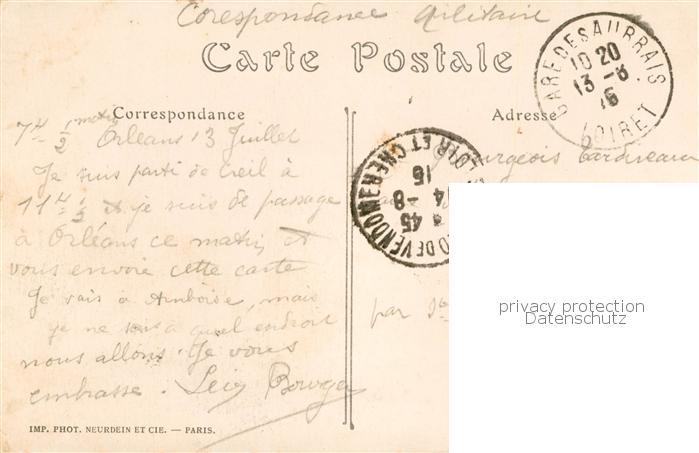 Corespondance Militaire
Carte Postale
Correspondance
Adresse
GARE DES AUBRAIS
10 20
13 -8
16
LOIRET
7H 1/2 matin
Orléans 13 Juillet
Je suis parti de Creil à
11H 1/2 et je suis de passage
à Orléans ce matin, et
vous envoie cette carte
Je vais à Amboise, mais
je ne sais à quel endroit
nous allons. Je vous
embrasse.
LOIR ET CHER
DE VENDOME
45
14 -8
16
Bourgeois
par St
privacy protection
Datenschutz
IMP. PHOT. NEURDEIN ET CIE. — PARIS.